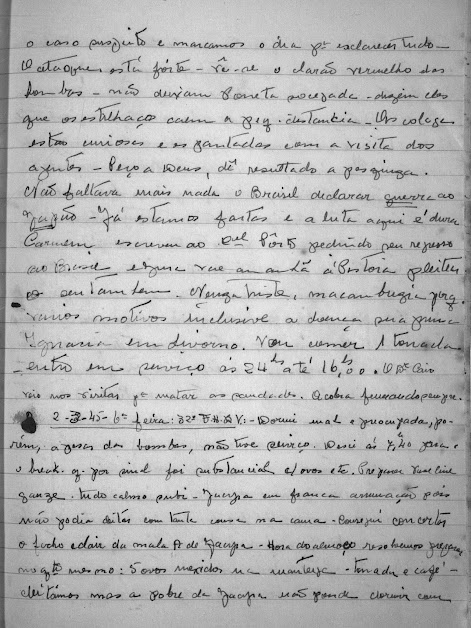 o caso suspeito e marcamos o dia pª esclarecer tudo -
O ataque está forte - vê-se o clarão vermelho das
bombas - não deixam Porreta socegada - dizem eles
que os estilhaços caem a peq. distancia - As colegas
estão curiosas e espantadas com a visita dos
agentes - Peço a Deus, dê resultado a pesquiza.
Não faltava mais nada o Brasil declarar guerra ao
Japão - Já estamos fartas e a luta aqui é dura
Carmem escreveu ao Cel Pôrto pedindo seu regresso
ao Brasil e vae amanhã à Pistoia pleitear
o seu tambem. triste, macambuzia por
varios motivos inclusive a doença
Ignacia em Livorno. Vou comer 1 torrada
entro em serviço ás 24hs até 16,hs00. O Dr
veio nos visitar pª matar as saudades. A cobra fumando sempre.
2-3-45-6ª feira: 32º F.H.: - Dormi mal e preocupada, po-
rém, apesar das bombas, não tive serviço. Desci ás 7,40 para o
break. q. por sinal foi substancial c/ovos etc. Preparei vaseline
ganze - tudo calmo subi - em franca arrumação pois
não podia deitar com tanta cousa na cama - Consegui concertar
o fecho eclair da mala A de - Hora do almoço resolvemos preparar
no qto mesmo: 5 ovos mexidos na manteiga - torrada e café -
deitámos mas a pobre da não poude dormir com